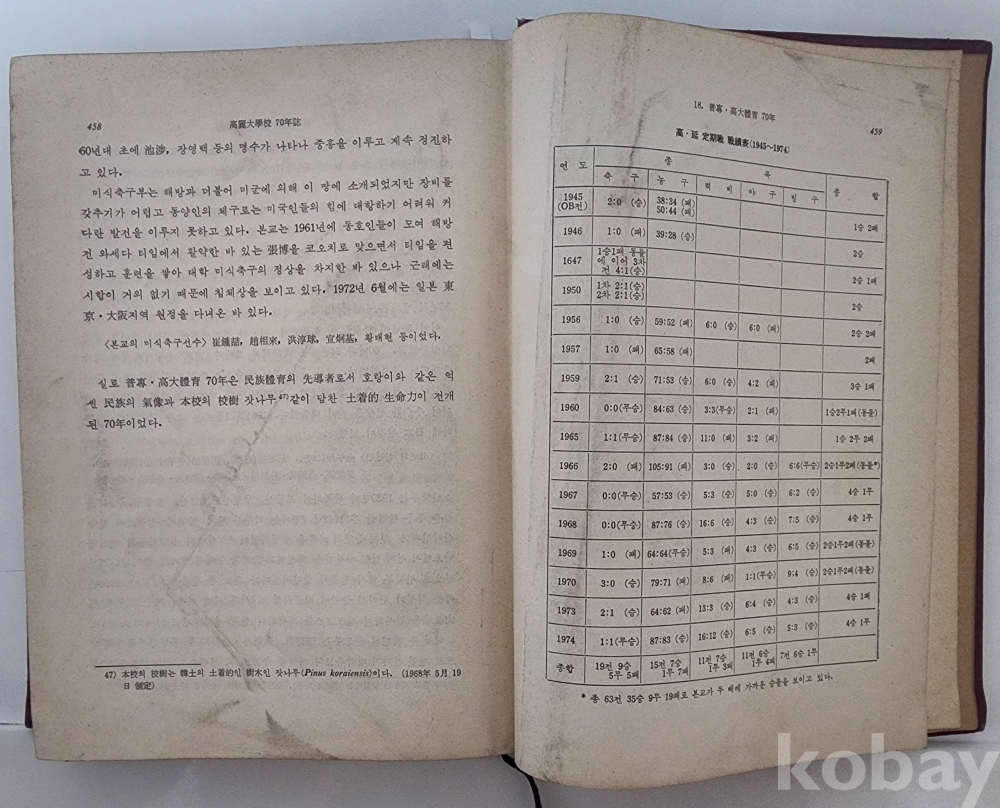 458
高麗大學校 70年誌
60년대 초에 池涉, 장영택 등의 명수가 나타나 중흥을 이루고 계속 정진하
고 있다.
미식축구부는 해방과 더불어 미군에 의해 이 땅에 소개되었지만 장비를
갖추기가 어렵고 동양인의 체구로는 미국인들의 힘에 대항하기 어려워 커
다란 발전을 이루지 못하고 있다. 본교는 1961년에 동호인들이 모여 해방
전 와세다 티임에서 활약한 바 있는 張博을 코오치로 맞으면서 티임을 편
성하고 훈련을 쌓아 대학 미식축구의 정상을 차지한 바 있으나 근래에는
시합이 거의 없기 때문에 침체상을 보이고 있다. 1972년 6월에는 일본 東
京・大阪지역 원정을 다녀온 바 있다.
〈본교의 미식축구선수〉 崔鍾喆, 趙相來, 洪淳球, 宣炯基, 황대현 등이었다.
실로 普專・高大體育 70년은 民族體育의 先導者로서 호랑이와 같은 억
센 民族의 氣像과 本校의 校樹 잣나무47)같이 담찬 土着的 生命力이 전개
된 70年이었다.
47) 本校의 校樹는 韓土의 土着的인 樹木인 잣나무(Pinus koraiensis)이다. (1968年 5月 19
日 制定)
18. 普專・高大體育 70年
459
高・延 定期戰 戰績表(1945~1974)
연 도 종 목 종 합
축 구 농 구 럭 비 야 구 빙 구
1945 (OB전) 2:0 (승) 38:34 (패) 50:44 (패) 1승 2패
1946 1:0 (패) 39:28 (승) 2승
1647 1승1패 동률에 이어 3차전 4:1(승) 2승 1패
1950 1차 2:1(승) 2차 2:1(승) 2승
1956 1:0 (승) 59:52 (패) 6:0 (승) 6:0 (패) 2승 2패
1957 1:0 (패) 65:58 (패) 2패
1959 2:1 (승) 71:53 (승) 6:0 (승) 4:2 (패) 3승 1패
1960 0:0(무승) 84:63 (승) 3:3(무승) 2:1 (패) 1승2무1패(동률)
1965 1:1(무승) 87:84 (승) 11:0 (패) 3:2 (패) 1승 2무 2패
1966 2:0 (패) 105:91 (패) 3:0 (승) 2:0 (승) 6:6(무승) 2승1무2패(동률*)
1967 0:0(무승) 57:53 (승) 5:3 (승) 5:0 (승) 6:2 (승) 4승 1무
1968 0:0(무승) 87:76 (승) 16:6 (승) 4:3 (승) 7:5 (승) 4승 1무
1969 1:0 (패) 64:64(무승) 5:3 (패) 4:3 (승) 6:5 (승) 2승1무2패(동률)
1970 3:0 (승) 79:71 (패) 8:6 (패) 1:1(무승) 9:4 (승) 2승1무2패(동률)
1973 2:1 (승) 64:62 (패) 13:3 (승) 6:4 (승) 4:3 (승) 4승 1패
1974 1:1(무승) 87:83 (승) 16:12 (승) 6:5 (승) 5:3 (승) 4승 1무
종합 19전 9승 5무 5패 15전 7승 1무 7패 11전 7승 1무 3패 11전 6승 1무 4패 7전 6승 1무
* 총 63전 35승 9무 19패로 본교가 두 배에 가까운 승률을 보이고 있다.
kobay